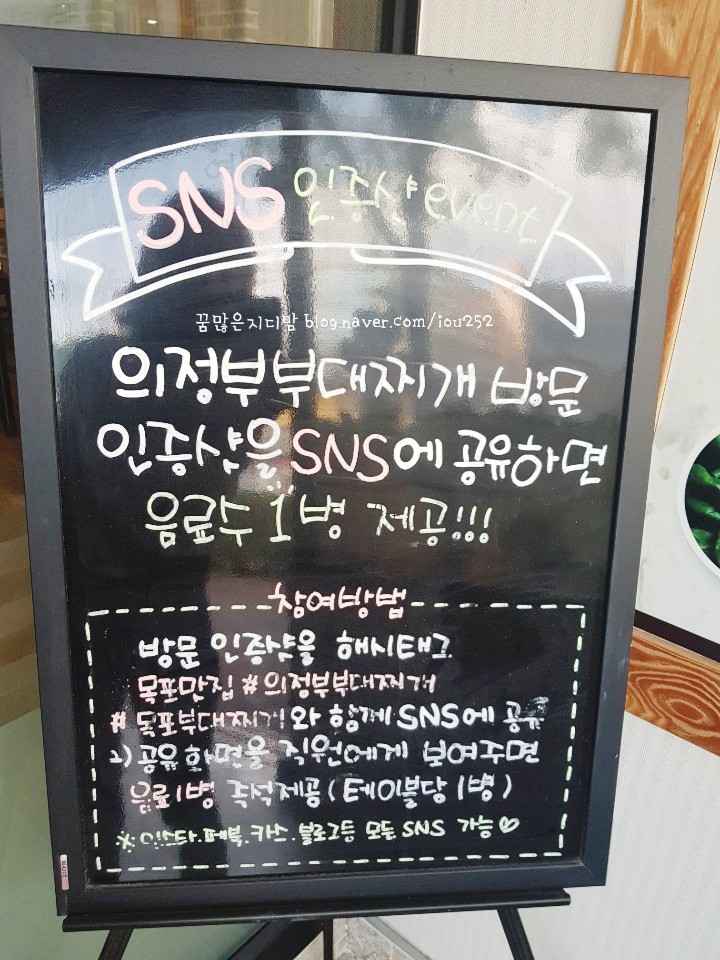 SNS 인증샷 event
꿈많은지디맘 blog.naver.com/iou252
의정부부대찌개 방문
인증샷을 SNS에 공유하면
음료수 1병 제공!!!
참여방법
방문 인증샷을 해시태그
목포맛집 #의정부부대찌개
#목포부대찌개와 함께 SNS에 공유
2) 공유 화면을 직원에게 보여주면
음료1병 즉석제공 (테이블당 1병)
※인스타.페북.카스.블로그등 모든 SNS 가능♡